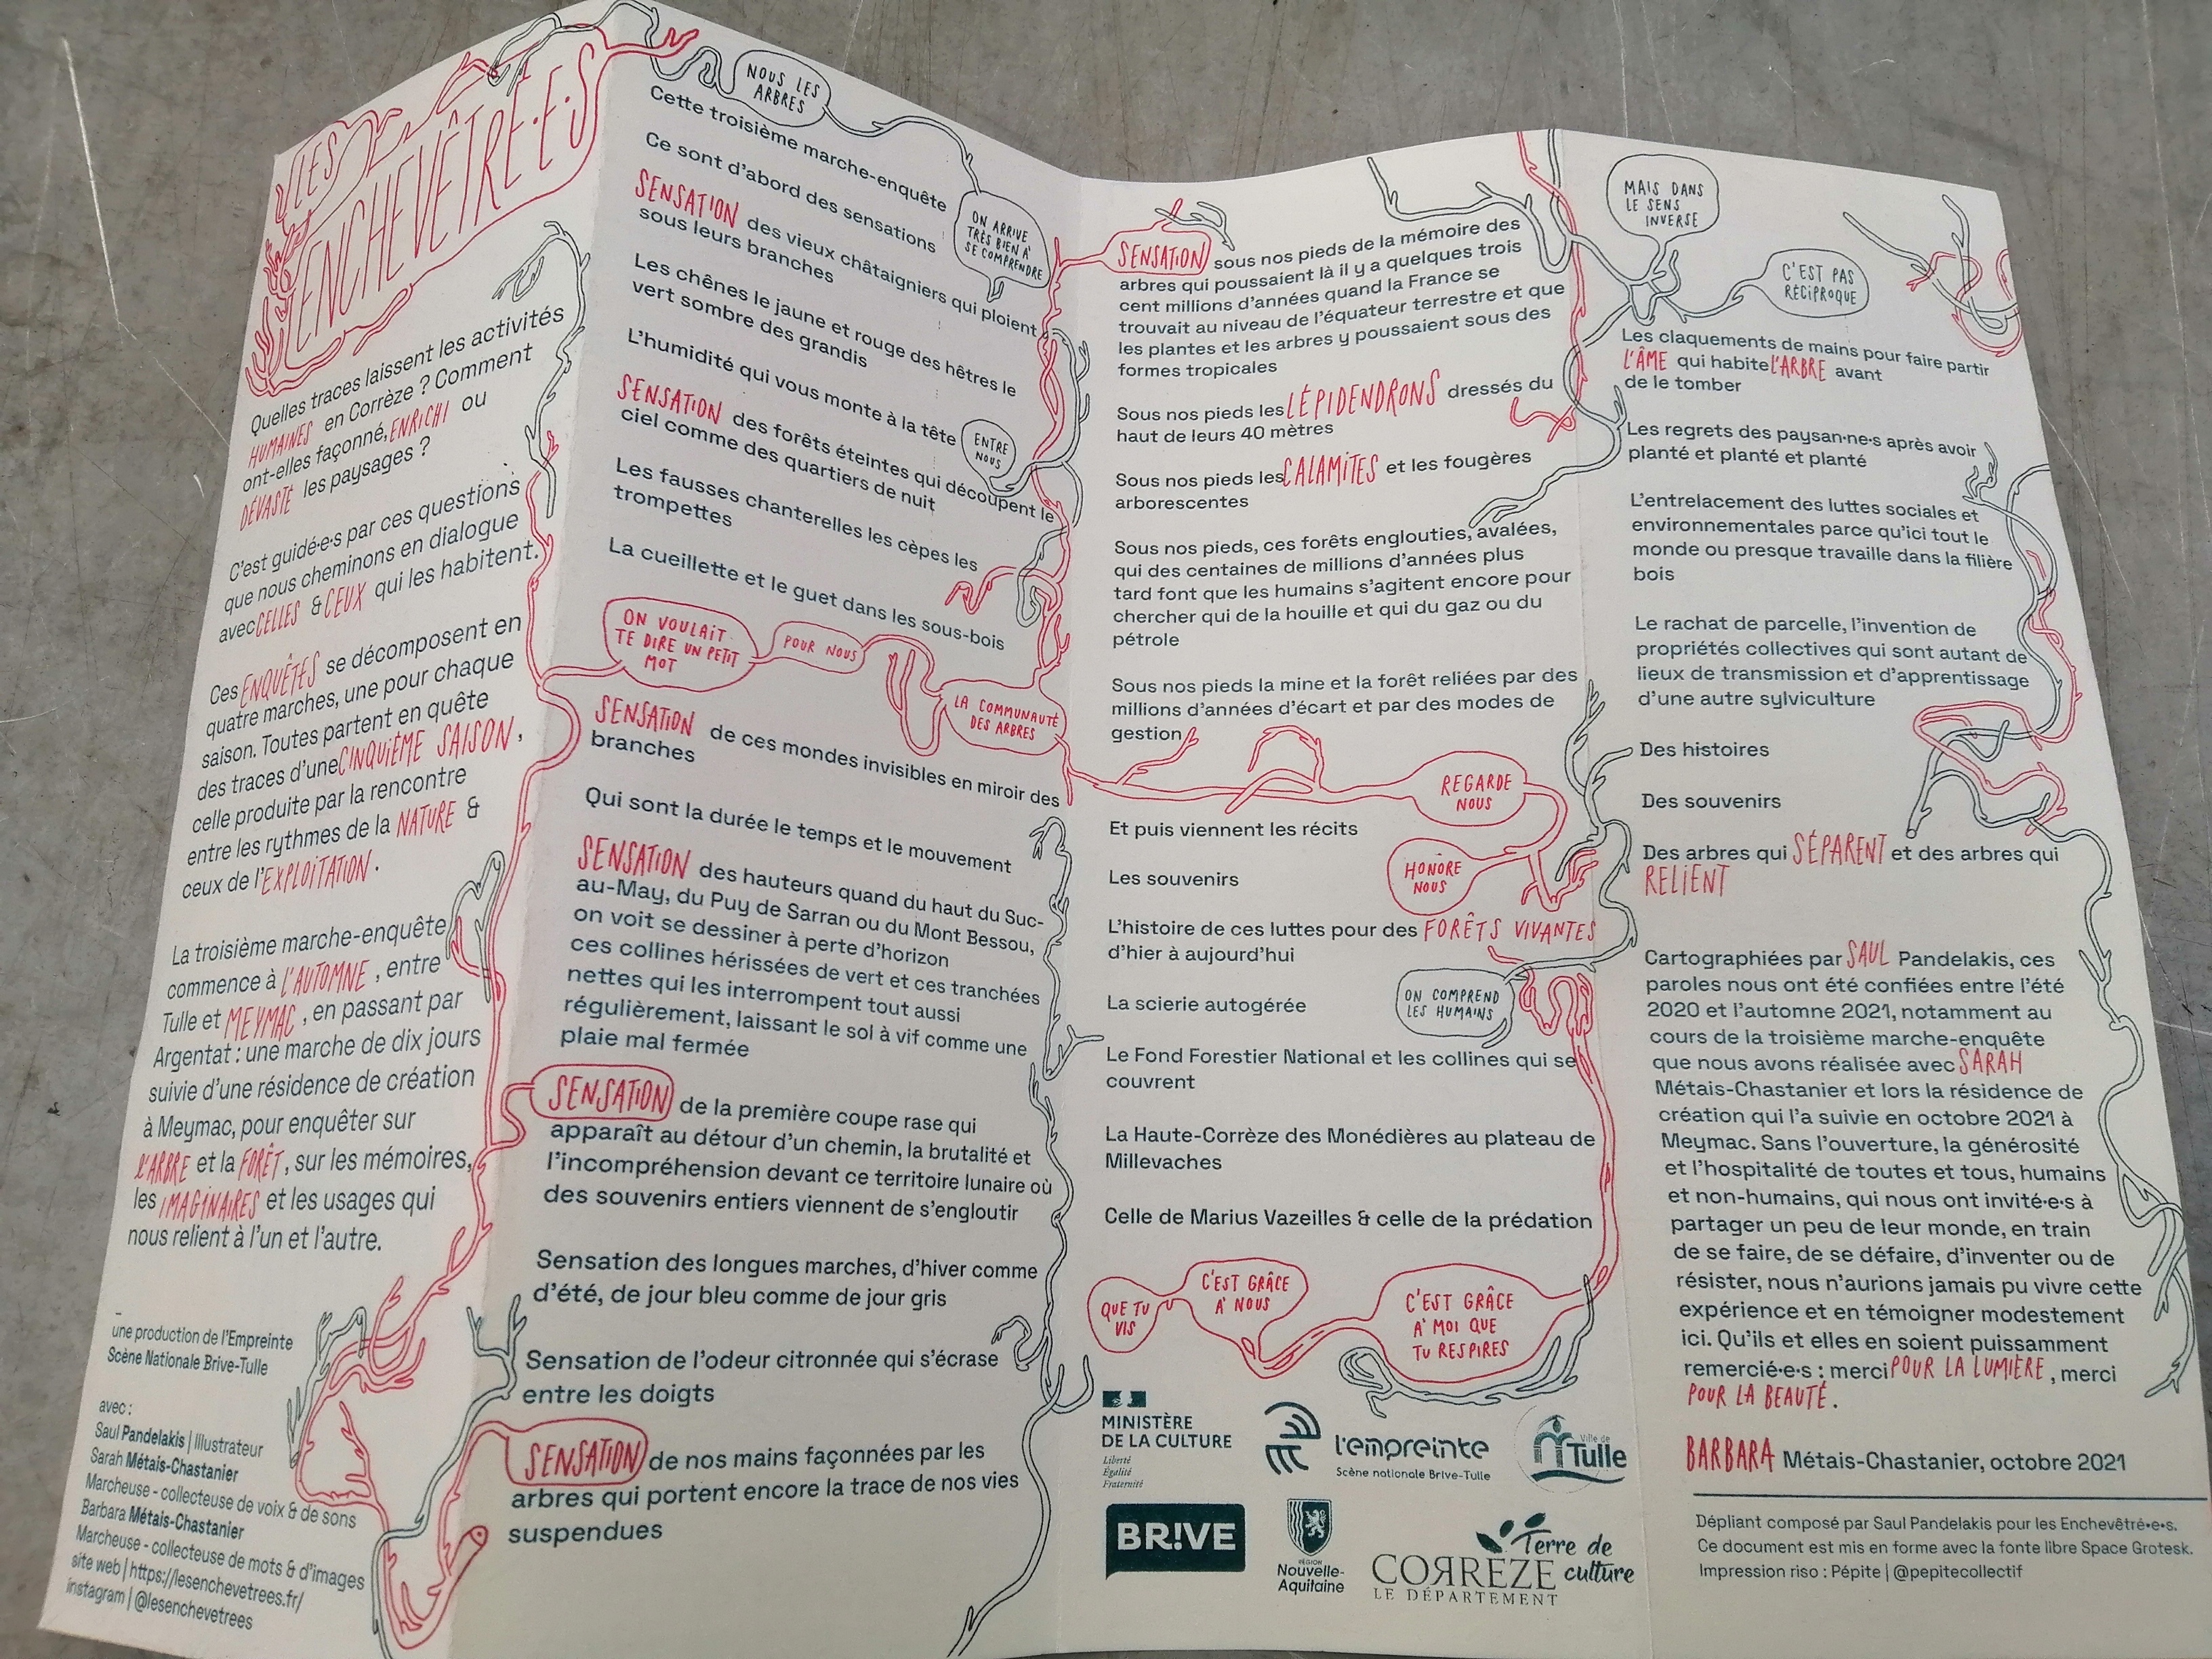 LES
ENCHEVÊTRÉ·E·S
Quelles traces laissent les activités
HUMAINES en Corrèze ? Comment
ont-elles façonné, ENRICHI ou
DÉVASTÉ les paysages ?
C'est guidé·e·s par ces questions
que nous cheminons en dialogue
avec CELLES & CEUX qui les habitent.
Ces ENQUÊTES se décomposent en
quatre marches, une pour chaque
saison. Toutes partent en quête
des traces d'une CINQUIÈME SAISON,
celle produite par la rencontre
entre les rythmes de la NATURE &
ceux de l'EXPLOITATION.
La troisième marche-enquête
commence à L'AUTOMNE, entre
Tulle et MEYMAC, en passant par
Argentat : une marche de dix jours
suivie d'une résidence de création
à Meymac, pour enquêter sur
L'ARBRE et la FORÊT, sur les mémoires,
les IMAGINAIRES et les usages qui
nous relient à l'un et l'autre.
-
une production de l'Empreinte
Scène Nationale Brive-Tulle
avec :
Saul Pandelakis | Illustrateur
Sarah Métais-Chastanier
Marcheuse - collecteuse de voix & de sons
Barbara Métais-Chastanier
Marcheuse - collecteuse de mots & d'images
site web | https://lesenchevetrees.fr/
instagram | @lesenchevetrees
NOUS LES
ARBRES
Cette troisième marche-enquête
Ce sont d'abord des sensations
ON ARRIVE
TRÈS BIEN À
SE COMPRENDRE
SENSATION des vieux châtaigniers qui ploient
sous leurs branches
Les chênes le jaune et rouge des hêtres le
vert sombre des grandis
L'humidité qui vous monte à la tête
ENTRE
NOUS
SENSATION des forêts éteintes qui découpent le
ciel comme des quartiers de nuit
Les fausses chanterelles les cèpes les
trompettes
La cueillette et le guet dans les sous-bois
ON VOULAIT
TE DIRE UN PETIT
MOT
POUR NOUS
LA COMMUNAUTÉ
DES ARBRES
SENSATION de ces mondes invisibles en miroir des
branches
Qui sont la durée le temps et le mouvement
SENSATION des hauteurs quand du haut du Suc-
au-May, du Puy de Sarran ou du Mont Bessou,
on voit se dessiner à perte d'horizon
ces collines hérissées de vert et ces tranchées
nettes qui les interrompent tout aussi
régulièrement, laissant le sol à vif comme une
plaie mal fermée
SENSATION de la première coupe rase qui
apparaît au détour d'un chemin, la brutalité et
l'incompréhension devant ce territoire lunaire où
des souvenirs entiers viennent de s'engloutir
Sensation des longues marches, d'hiver comme
d'été, de jour bleu comme de jour gris
Sensation de l'odeur citronnée qui s'écrase
entre les doigts
SENSATION de nos mains façonnées par les
arbres qui portent encore la trace de nos vies
suspendues
SENSATION sous nos pieds de la mémoire des
arbres qui poussaient là il y a quelques trois
cent millions d'années quand la France se
trouvait au niveau de l'équateur terrestre et que
les plantes et les arbres y poussaient sous des
formes tropicales
Sous nos pieds les LÉPIDENDRONS dressés du
haut de leurs 40 mètres
Sous nos pieds les CALAMITES et les fougères
arborescentes
Sous nos pieds, ces forêts englouties, avalées,
qui des centaines de millions d'années plus
tard font que les humains s'agitent encore pour
chercher qui de la houille et qui du gaz ou du
pétrole
Sous nos pieds la mine et la forêt reliées par des
millions d'années d'écart et par des modes de
gestion
REGARDE
NOUS
Et puis viennent les récits
Les souvenirs
HONORE
NOUS
L'histoire de ces luttes pour des FORÊTS VIVANTES
d'hier à aujourd'hui
La scierie autogérée
ON COMPREND
LES HUMAINS
Le Fond Forestier National et les collines qui se
couvrent
La Haute-Corrèze des Monédières au plateau de
Millevaches
Celle de Marius Vazeilles & celle de la prédation
QUE TU
VIS
C'EST GRÂCE
À NOUS
C'EST GRÂCE
À MOI QUE
TU RESPIRES
MINISTÈRE
DE LA CULTURE
Liberté
Égalité
Fraternité
l'empreinte
Scène nationale Brive-Tulle
Ville de
Tulle
BR!VE
RÉGION
Nouvelle-
Aquitaine
Terre de
culture
CORRÈZE
LE DÉPARTEMENT
MAIS DANS
LE SENS
INVERSE
C'EST PAS
RÉCIPROQUE
Les claquements de mains pour faire partir
L'ÂME qui habite L'ARBRE avant
de le tomber
Les regrets des paysan·ne·s après avoir
planté et planté et planté
L'entrelacement des luttes sociales et
environnementales parce qu'ici tout le
monde ou presque travaille dans la filière
bois
Le rachat de parcelle, l'invention de
propriétés collectives qui sont autant de
lieux de transmission et d'apprentissage
d'une autre sylviculture
Des histoires
Des souvenirs
Des arbres qui SÉPARENT et des arbres qui
RELIENT
Cartographiées par SAUL Pandelakis, ces
paroles nous ont été confiées entre l'été
2020 et l'automne 2021, notamment au
cours de la troisième marche-enquête
que nous avons réalisée avec SARAH
Métais-Chastanier et lors la résidence de
création qui l'a suivie en octobre 2021 à
Meymac. Sans l'ouverture, la générosité
et l'hospitalité de toutes et tous, humains
et non-humains, qui nous ont invité·e·s à
partager un peu de leur monde, en train
de se faire, de se défaire, d'inventer ou de
résister, nous n'aurions jamais pu vivre cette
expérience et en témoigner modestement
ici. Qu'ils et elles en soient puissamment
remercié·e·s : merci POUR LA LUMIÈRE, merci
POUR LA BEAUTÉ.
BARBARA Métais-Chastanier, octobre 2021
Dépliant composé par Saul Pandelakis pour les Enchevêtré·e·s.
Ce document est mis en forme avec la fonte libre Space Grotesk.
Impression riso : Pépite | @pepitecollectif